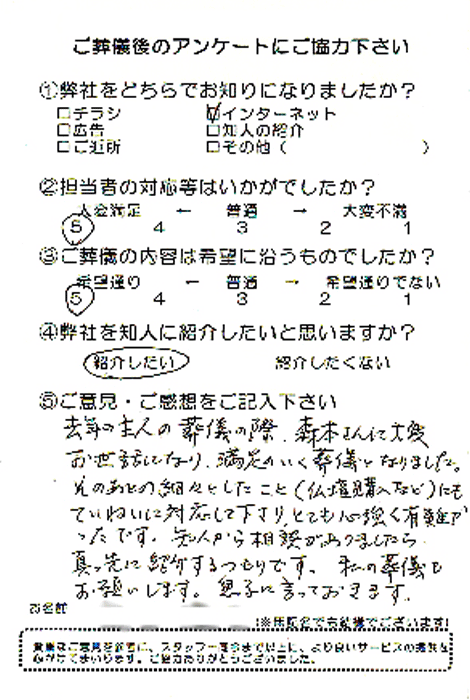 ご葬儀後のアンケートにご協力下さい
①弊社をどちらでお知りになりましたか?
□チラシ ☑インターネット
□広告 □知人の紹介
□ご近所 □その他( )
②担当者の対応等はいかがでしたか?
大変満足 ← 普通 → 大変不満
5 4 3 2 1
③ご葬儀の内容は希望に沿うものでしたか?
希望通り ← 普通 → 希望通りでない
5 4 3 2 1
④弊社を知人に紹介したいと思いますか?
紹介したい 紹介したくない
⑤ご意見・ご感想をご記入下さい
去年の主人の葬儀の際、森本さんに大変
お世話になり、満足のいく葬儀となりました。
そのあとの細々としたこと(仏壇購入など)にも
ていねいに対応して下さりとても心強く有難か
ったです。知人から相談がありましたら
真っ先に紹介するつもりです。私の葬儀も
お願いします。息子に言っておきます。
お名前
(※匿名でも結構でございます)
貴重なご意見を参考に、スタッフ一同今まで以上に、より良いサービスの提供を
心がけてまいります。ご協力ありがとうございました。